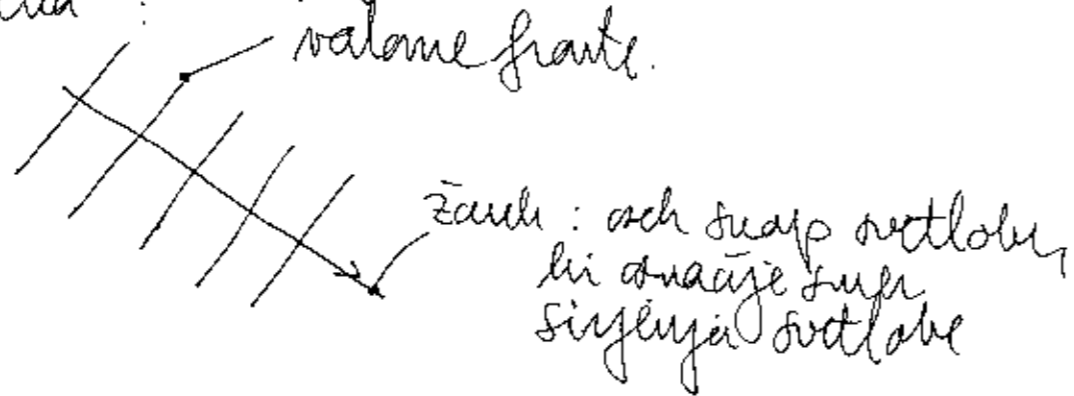 valovne fronte.
žarek : ozek snop svetlobe,
ki označuje smer
širjenja svetlobe